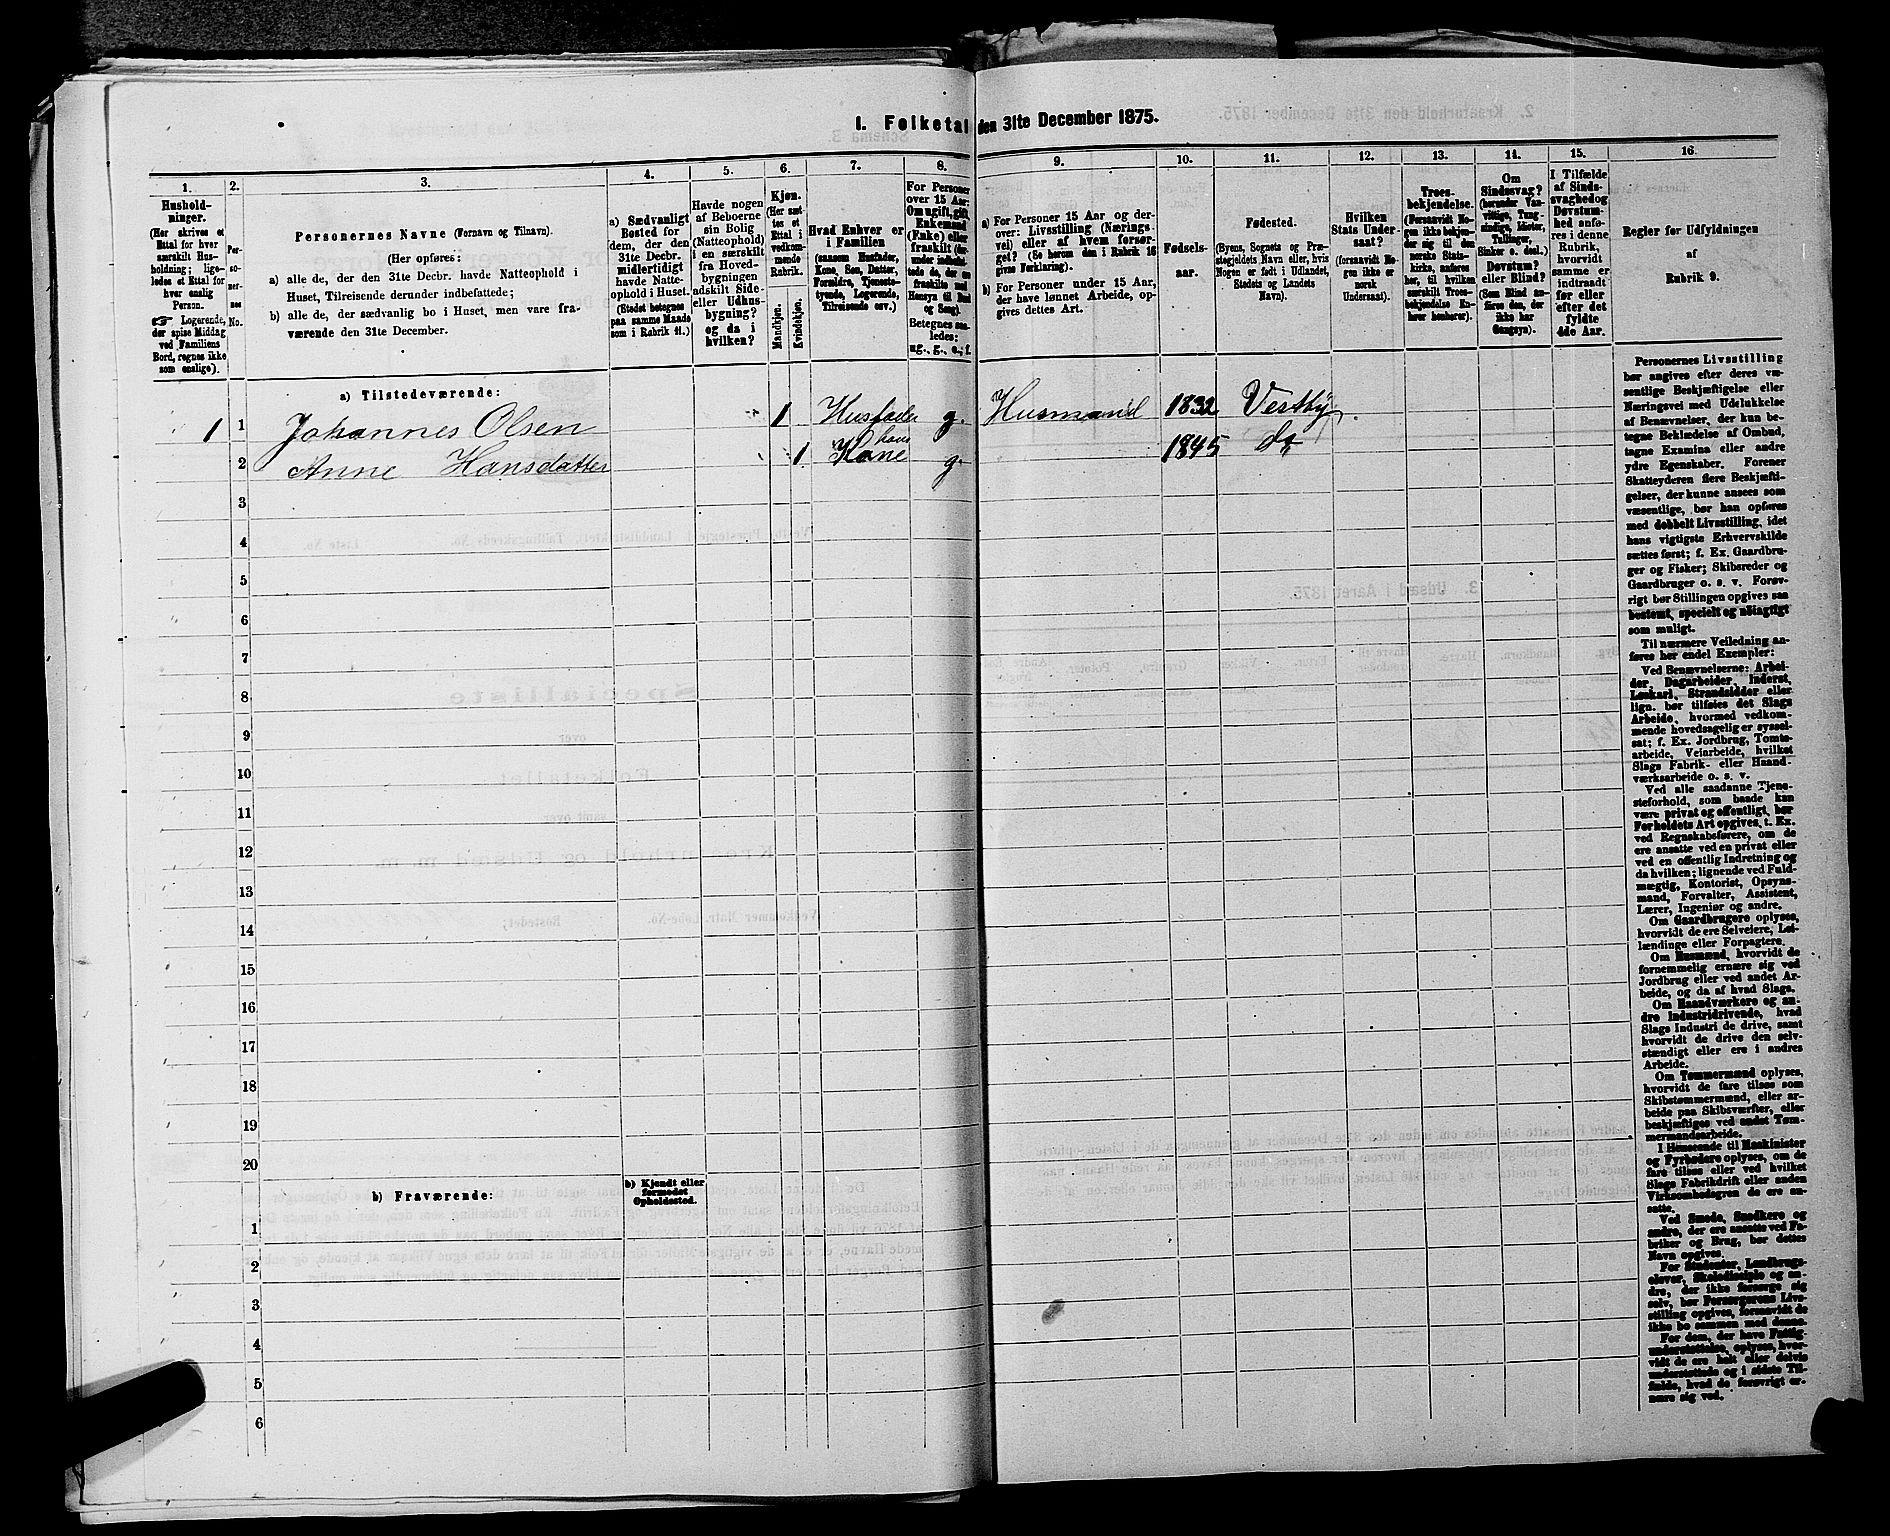 I. Folketal den 31te December 1875.
1. 2. 3. 4. 5. 6. 7. 8. 9. 10. 11. 12. 13. 14. 15. 16.
Hushold-
ninger.
(Her skrives et
Ettal for hver
særskilt Hus-
holdning; lige-
ledes et Ettal for
hver enslig
Person.
☞ Logerende,
der spise Middag
ved Familiens
Bord, regnes ikke
som enslige).
Per-
so-
ner-
nes
No.
Personernes Navne (Fornavn og Tilnavn).
(Her opføres:
a) alle de, der den 31te Decbr. havde Natteophold i
Huset, Tilreisende derunder indbefattede;
b) alle de, der sædvanlig bo i Huset, men vare fra-
værende den 31te December.
a) Sædvanligt
Bosted for
dem, der den
31te Decbr.
midlertidigt
havde Natte-
ophold i Huset.
(Stedet betegnes
paa samme Maade
som i Rubrik 11.)
Havde nogen
af Beboerne
sin Bolig
(Natteophold)
i en særskilt
fra Hoved-
bygningen
adskilt Side-
eller Udhus-
bygning?
og da i
hvilken?
Kjøn.
(Her sæt-
tes et
Ettal i
vedkom-
mende
Rubrik.
Mandkjøn.
Kvindekjøn.
Hvad Enhver er
i Familien
(saasom Husfader,
Kone, Søn, Datter,
Forældre, Tjeneste-
tyende, Logerende,
Tilreisende osv.)
For Personer
over 15 Aar:
Om ugift, gift,
Enkemand
(Enke) eller
fraskilt (der-
under indbefat-
tede de, der ere
fraskilte med
Hensyn til Bord
og Seng).
Betegnes saa-
ledes:
ug., g., e., f.
a) For Personer 15 Aar og der-
over: Livsstilling (Nærings-
vei) eller af hvem forsør-
get? (Se herom den i Rubrik 16
givne Forklaring).
b) For Personer under 15 Aar,
der have lønnet Arbeide, op-
gives dettes Art.
Fødsels-
aar.
Fødested.
(Byens, Sognets og Præ-
stegjeldets Navn eller, hvis
Nogen er født i Udlandet,
Stedets og Landets
Navn).
Hvilken
Stats Under-
saat?
(forsaavidt No-
gen ikke er
norsk
Undersaat).
Troes-
bekjendelse.
(Forsaavidt No-
gen ikke bekjen-
der sig til den
norske Stats-
kirke, anføres
her, til hvilken
særskilt Troes-
bekjendelse En-
hver henhører).
Om
Sindssvag?
(herunder Van-
vittige, Tung-
sindige, Idioter,
Tullinger,
Sinker o. desl.)
Døvstum?
eller Blind?
(Som Blind an-
føres den, der
ikke har
Gangsyn).
I Tilfælde
af Sinds-
svaghed og
Døvstum-
hed anfø-
res i denne
Rubrik,
hvorvidt
samme er
indtraadt
før eller
efter det
fyldte
4de Aar.
Regler for Udfyldningen
af
Rubrik 9.
a) Tilstedeværende:
1 1 Johannes Olsen 1 Husfader g. Husmand 1832 Vestby.
2 Anne Hansdatter 1 hans Kone g. 1845 do
3
4
5
6
7
8
9
10
11
12
13
14
15
16
17
18
19
20
b) Fraværende:
b) Kjendt eller
formodet
Opholdssted.
1
2
3
4
5
6
Personernes Livsstilling
bør angives efter deres væ-
sentlige Beskjæftigelse eller
Næringsvei med Udelukkelse
af Benævnelser, der kun be-
tegne Beklædelse af Ombud,
tagne Examina eller andre
ydre Egenskaber. Forener
Skatteyderen flere Beskjæfti-
gelser, der kunne ansees som
væsentlige, bør han opføres
med dobbelt Livsstilling, idet
hans vigtigste Erhvervskilde
sættes først; f. Ex. Gaardbru-
ger og Fisker; Skibsreder og
Gaardbruger o. s. v. Forøv-
rigt bør Stillingen opgives saa
bestemt, specielt og nøiagtigt
som muligt.
Til nærmere Veiledning an-
føres her endel Exempler:
Ved Benævnelserne: Arbei-
der, Dagarbeider, Inderst,
Løskarl, Strandsidder eller
lign. bør tilføies det Slags
Arbeide, hvormed vedkom-
mende hovedsagelig er syssel-
sat; f. Ex. Jordbrug, Tomte-
arbeide, Veiarbeide, hvilket
Slags Fabrik- eller Haand-
værksarbeide o. s. v.
Ved alle saadanne Tjene-
steforhold, som baade kan
være privat og offentligt, bør
Forholdets Art opgives, t. Ex.
ved Regnskabsførere, om de
ere ansatte ved en privat eller
ved en offentlig Indretning og
da hvilken; lignende ved Fuld-
mægtig, Kontorist, Opsyns-
mand, Forvalter, Assistent,
Lærer, Ingeniør og andre.
Om Gaardbrugere oplyses,
hvorvidt de ere Selveiere, Lei-
lændinge eller Forpagtere.
Om Husmænd, hvorvidt de
fornemmelig ernære sig ved
Jordbrug eller ved andet Ar-
beide, og da af hvad Slags.
Om Haandværkere og an-
dre Industridrivende, hvad
Slags Industri de drive, samt
hvorvidt de drive den selv-
stændigt eller ere i andres
Arbeide.
Om Tømmermænd oplyses,
hvorvidt de fare tilsøs som
Skibstømmermænd, eller ar-
beide paa Skibsværfter, eller
beskjæftiges ved andet Tøm-
mermandsarbeide.
I Henseende til Maskinister
og Fyrbødere oplyses, om de
fare tilsøs eller ved hvilket
Slags Fabrikdrift eller anden
Virksomhedsgren de ere an-
satte.
Ved Smede, Snedkere og
andre, der ere ansatte ved Fa-
briker og Brug, bør dettes
Navn opgives.
For Studenter, Landbrugs-
elever, Skoledisciple og an-
dre, der ikke forsørge sig
selv, bør Forsørgerens Livs-
stilling opgives, forsaavidt de
ikke bo sammen med denne.
For dem, der have Fattig-
understøttelse, oplyses, hvor-
vidt de ere helt eller delvis
understøttede og i sidste Til-
fælde, hvad de forøvrigt er-
nære sig ved.